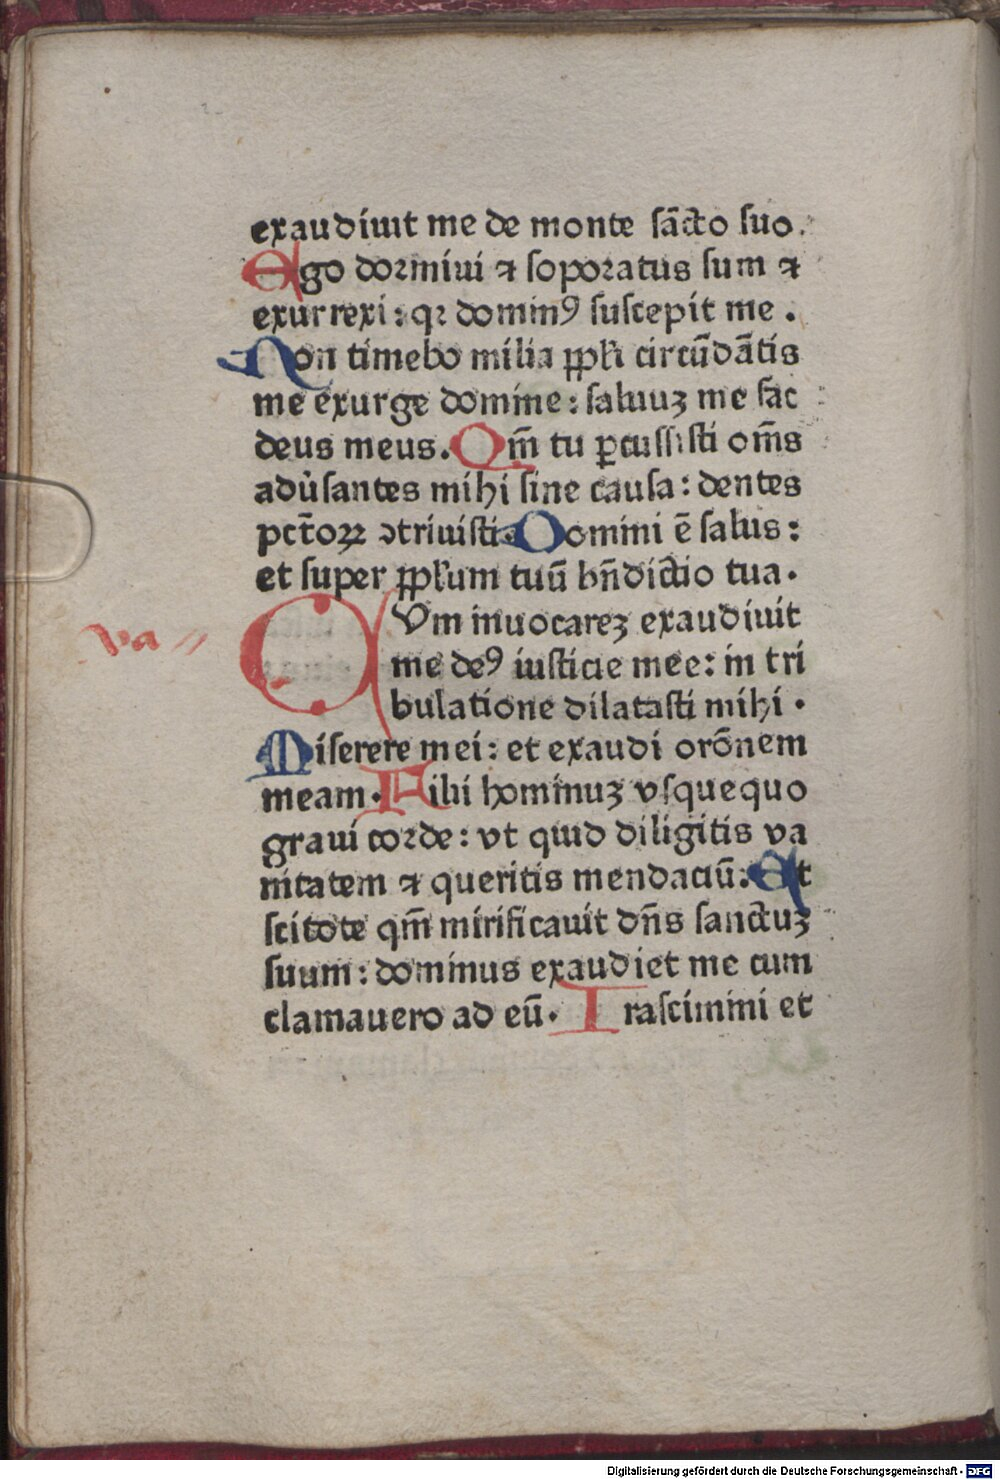 exaudiuit me de monte sācto suo.
Ego dormiui ⁊ soporatus sum ⁊
exurrexi: qꝛ dominꝰ suscepit me.
Non timebo milia ppl̓i circūdātis
me exurge domine: saluuꝫ me fac
deus meus. Qm̄ tu ꝑcussisti om̄s
adu̓santes mihi sine causa: dentes
pct̄oꝝ ↄtriuisti. Domini ē salus:
et super ppl̓um tuū bn̄dictio tua.
CUm inuocareꝫ exaudiuit
va
me deꝰ iusticie mee: in tri
bulatione dilatasti mihi.
Miserere mei: et exaudi orōnem
meam. Filii hominuꝫ vsquequo
graui corde: vt quid diligitis va
nitatem ⁊ queritis mendaciū. Et
scitote qm̄ mirificauit dn̄s sanctuꝫ
suum: dominus exaudiet me cum
clamauero ad eū. Irascimini et
Digitalisierung gefördert durch die Deutsche Forschungsgemeinschaft - DFG